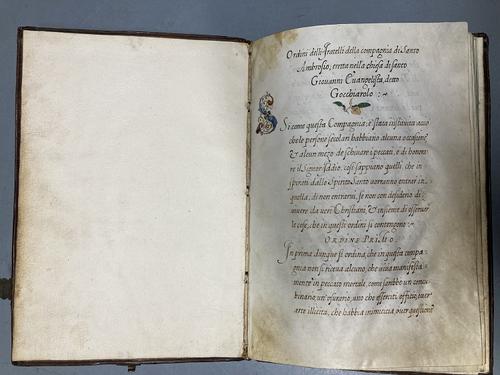 Ordini delli Fratelli della compagnia di Santo
Ambrosio, eretta nella chiesa di santo
Giovanni Euangelista, detto
Gocchiarolo :~
Si come questa Compagnia, è stata instituita acciò
che le persone secolari habbiano alcuna occasione
& alcun mezo de schiuare i peccati, e di honora-
re il Signor Iddio, così sappiano quelli, che in-
spirati dallo Spirito Santo vorranno entrar in
quella, di non entrarui, se non con desiderio di
viuere da veri Christiani, & insieme di osseruar
le cose, che in questi ordini si contengono
ORDINE PRIMO
In prima dunque si ordina, che in questa compa-
gnia non si riceua alcuno, che viua manifesta
mente in peccato mortale, come sarebbe un concu-
binario, un usurario, uno che esserciti officio, ouer
arte illicita, che habbia inimicitia, ouer questione